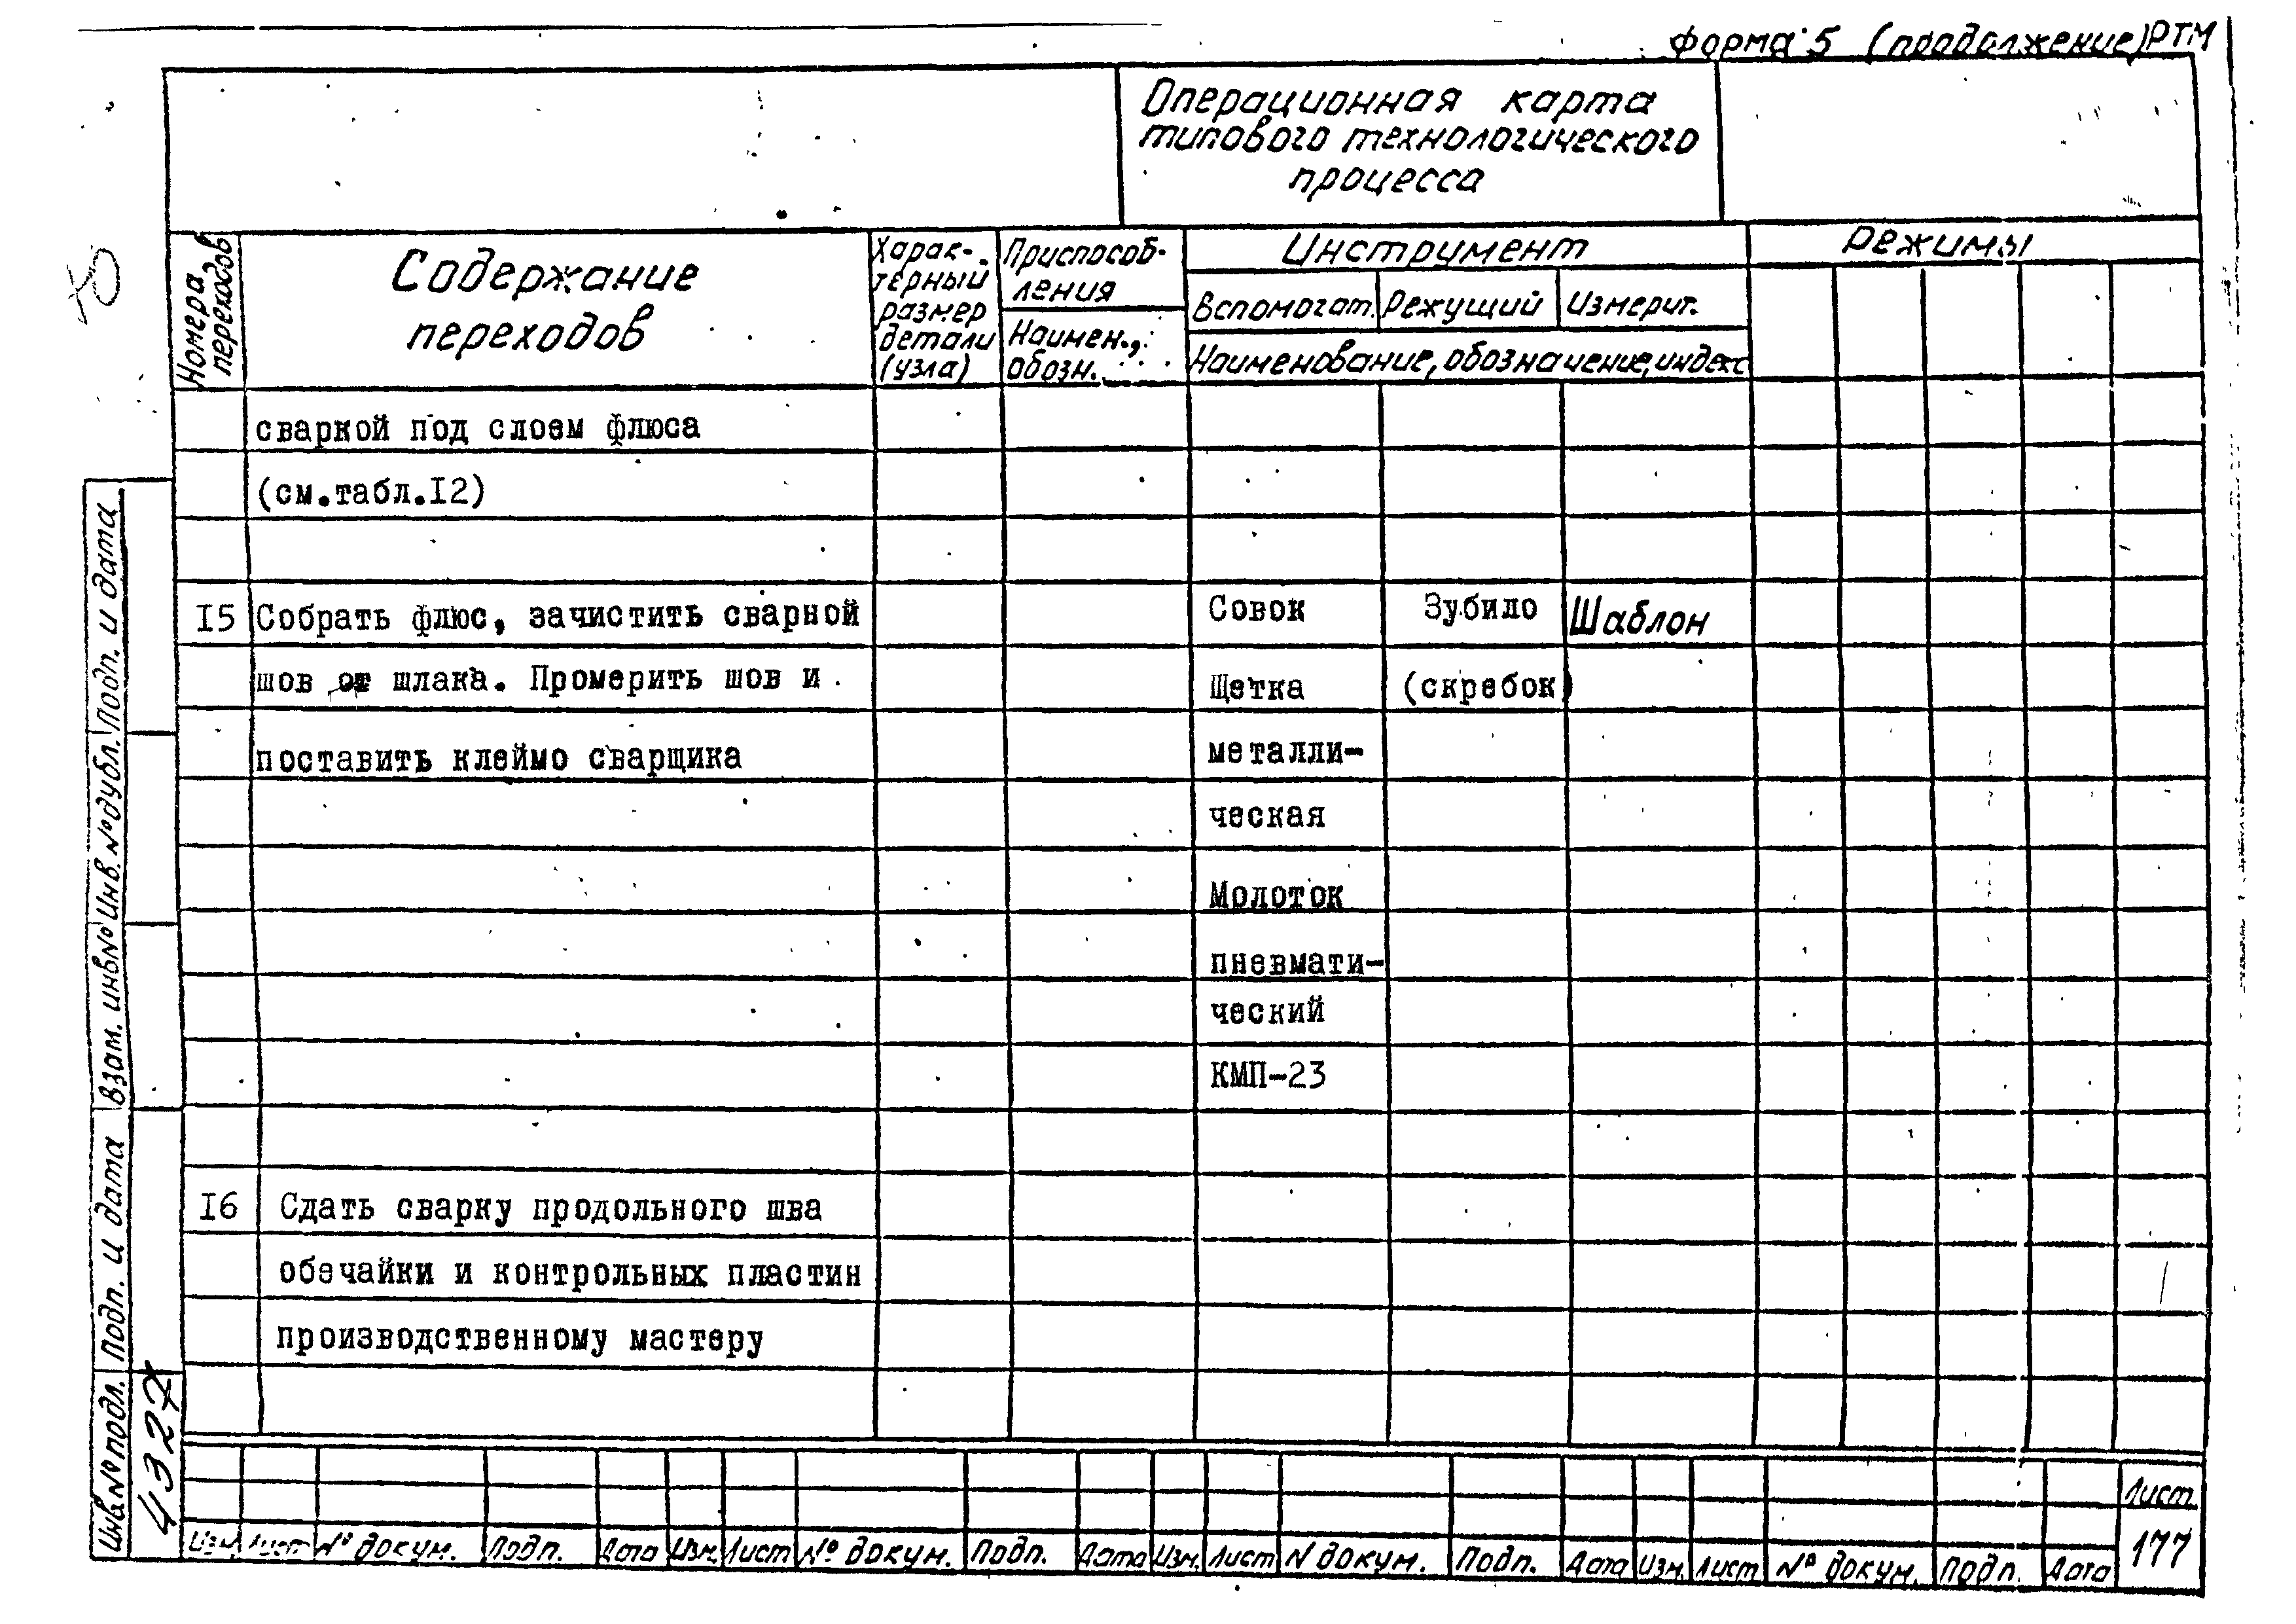 форма 5 (продолжение) РТМ
Операционная карта
типового технологического
процесса
Номера
переходов
Содержание
переходов
Харак-
терный
размер
детали
(узла)
Приспособ-
ления
Наимен.,
обозн.
Инструмент
Вспомогат. Режущий Измерит.
Наименование, обозначение, индекс
Режимы
сваркой под слоем флюса
(см.табл.I2)
I5 Собрать флюс, зачистить сварной Совок Зубило Шаблон
шов от шлака. Промерить шов и Щетка (скребок)
поставить клеймо сварщика металли-
ческая
Молоток
пневмати-
ческий
КМП-23
I6 Сдать сварку продольного шва
обечайки и контрольных пластин
производственному мастеру
Инв.№подл. Подп. и дата Взам. инв№ Инв.№дубл. Подп. и дата
4327
Изм. Лист № докум. Подп. Дата Изм. Лист № докум. Подп. Дата Изм. Лист N докум. Подп. Дата Изм. Лист № докум. Подп. Дата
Лист
177